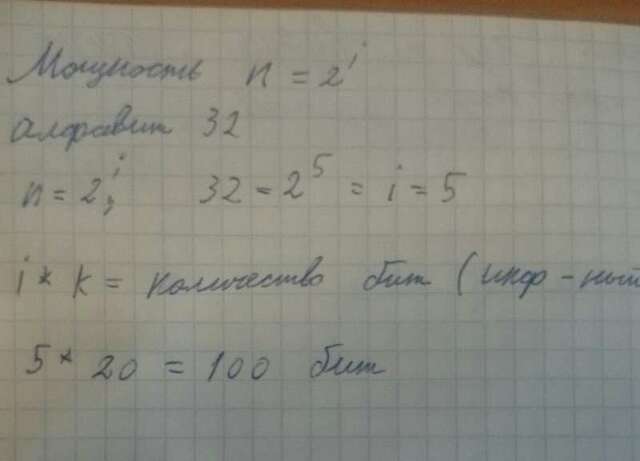 Мощность n = 2^i
алфавит 32
n = 2^i; 32 = 2^5 = i = 5
i * k = количество бит (инф-ный
5 * 20 = 100 бит